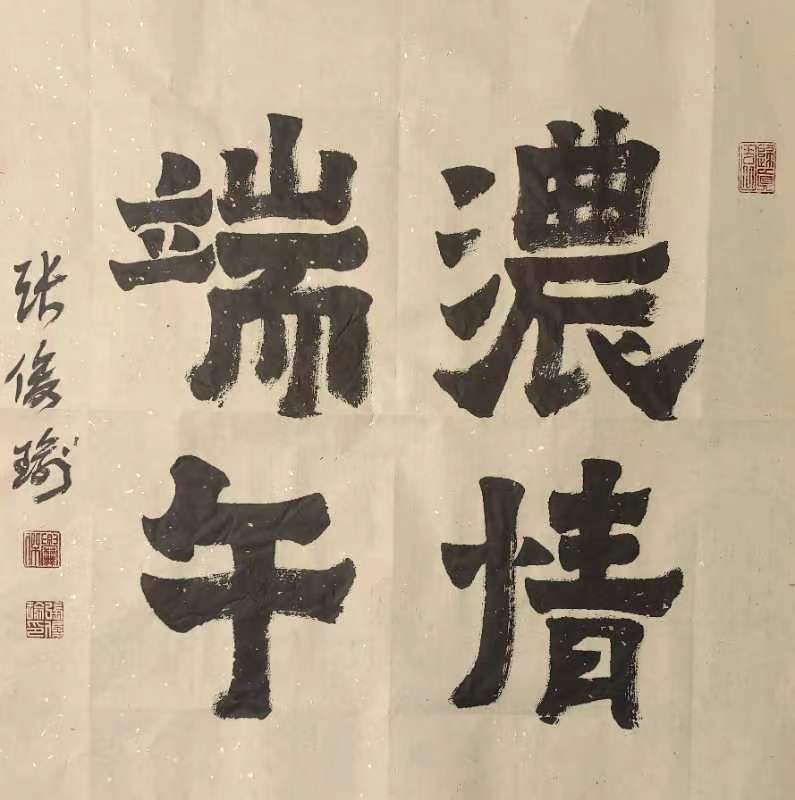 濃情
端午
张俊瑜